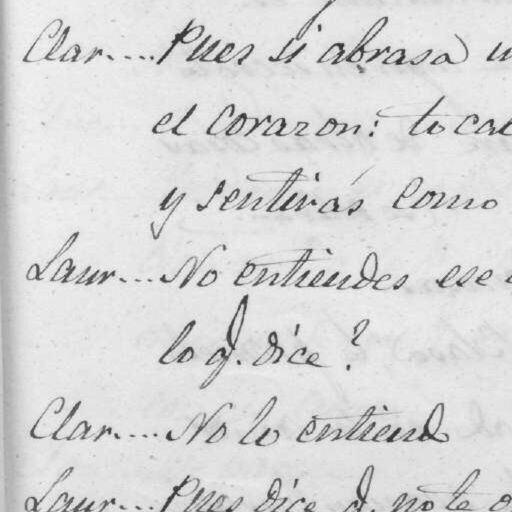 Clar.... Pues si abrasa
el corazon: to
y sentirás como
Laur... No entiendes ese
lo q.e dice?
Clar.... No lo entiend
Laur... Pues dice q.e no te